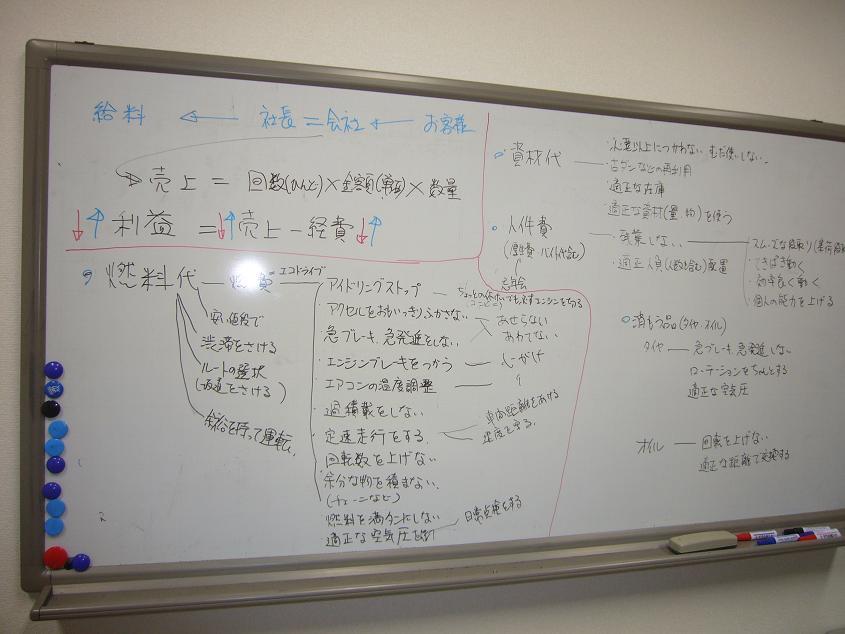 給料 ← 社長 = 会社 ← お客様
売上 = 回数(ひんど)×金額(単価)×数量
↓↑ 利益 = ↓↑ 売上 - 経費 ↓↑
燃料代 — 燃費 エコドライブ
安い値段で
渋滞をさける
ルートの選択
(坂道をさける)
余裕を持って運転
アイドリングストップ
アクセルをおもいっきりふかさない
急ブレーキ、急発進をしない
・エンジンブレーキをつかう
・エアコンの温度調整
過積載をしない
定速走行をする
回転数を上げない
余分な物を積まない
(チェーンなど)
燃料を満タンにしない
適正な空気圧
必ずエンジンを切る
あせらない
あわてない
心がけ
車間距離をあける
速度を守る
日常点検をする
資材代
・必要以上につかわない むだ使いしない
・古ダンなどの再利用
・適正な在庫
・適正な資材(量・物)を使う
人件費
(厚生費・バイト代含む)
忘年会
・残業しない
・適正人員(人数も含む)配置
・てきぱき動く
・効率良く動く
・個人の能力を上げる
消もう品(タイヤ・オイル)
タイヤ — 急ブレーキ、急発進しない
ローテーションをちゃんとする
適正な空気圧
オイル — 回転を上げない
適正な距離で交換する